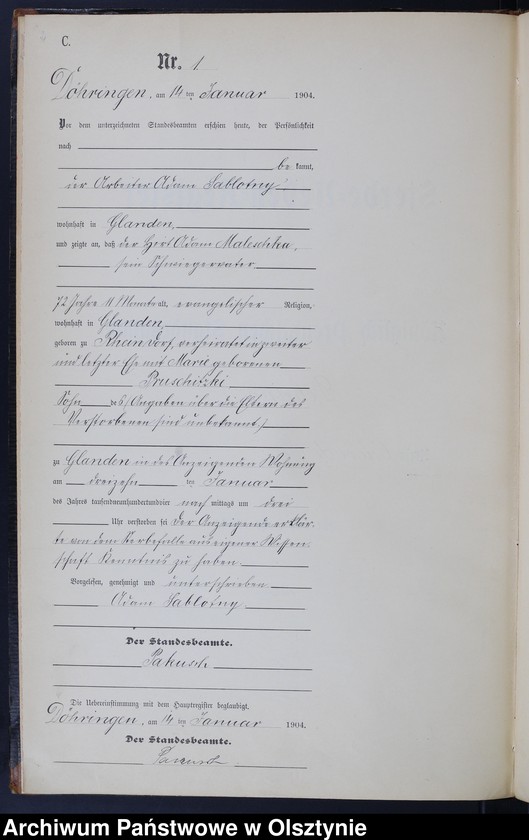 C.
Nr. 1
Döhringen, am 14 ten Januar 1904.
Vor dem unterzeichneten Standesbeamten erschien heute, der Persönlichkeit
nach
be kannt,
der Arbeiter Adam Sablotny
wohnhaft in Glanden,
und zeigte an, daß der Hirt Adam Maleschka,
sein Schwiegervater
72 Jahre 11 Monate alt, evangelischer Religion,
wohnhaft in Glanden,
geboren zu Rhein Dorf, verheiratet in zweiter
und letzter Ehe mit Marie geborenen
Pruschitzki
Sohn des (Angaben über die Eltern des
Verstorbenen sind unbekannt)
zu Glanden in des Anzeigenden Wohnung
am dreizehn ten Januar
des Jahres tausendneunhundertundvier nach mittags um drei
Uhr verstorben sei Der Anzeigende erklär-
te von dem Sterbefalle aus eigener Wissen-
schaft Kenntnis zu haben.
Vorgelesen, genehmigt und unterschrieben
Adam Sablotny
Der Standesbeamte.
Die Uebereinstimmung mit dem Hauptregister beglaubigt.
Döhringen, am 14 ten Januar 1904.
Der Standesbeamte.
Archiwum Państwowe w Olsztynie